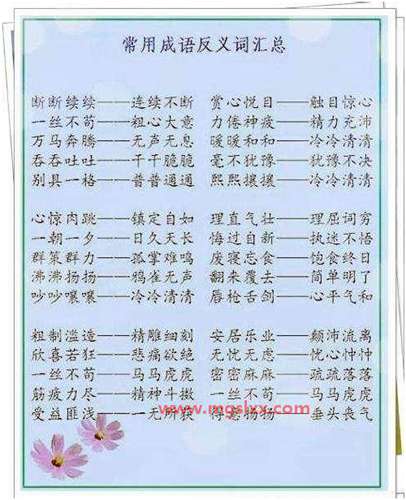 常用成语反义词汇总
断断续续——连续不断 赏心悦目——触目惊心
一丝不苟——粗心大意 力倦神疲——精力充沛
万马奔腾——无声无息 暖暖和和——冷冷清清
吞吞吐吐——干干脆脆 毫不犹豫——犹豫不决
别具一格——普普通通 熙熙攘攘——冷冷清清
心惊肉跳——镇定自如 理直气壮——理屈词穷
一朝一夕——日久天长 悔过自新——执迷不悟
群策群力——孤掌难鸣 废寝忘食——饱食终日
沸沸扬扬——鸦雀无声 翻来覆去——简单明了
吵吵嚷嚷——冷冷清清 唇枪舌剑——心平气和
粗制滥造——精雕细刻 安居乐业——颠沛流离
欣喜若狂——悲痛欲绝 无忧无虑——忧心忡忡
一丝不苟——马马虎虎 密密麻麻——疏疏落落
筋疲力尽——精神斗擞 一丝不苟——马马虎虎
www.mgslxx.com
受益匪浅——一无所获 得意扬扬——垂头丧气